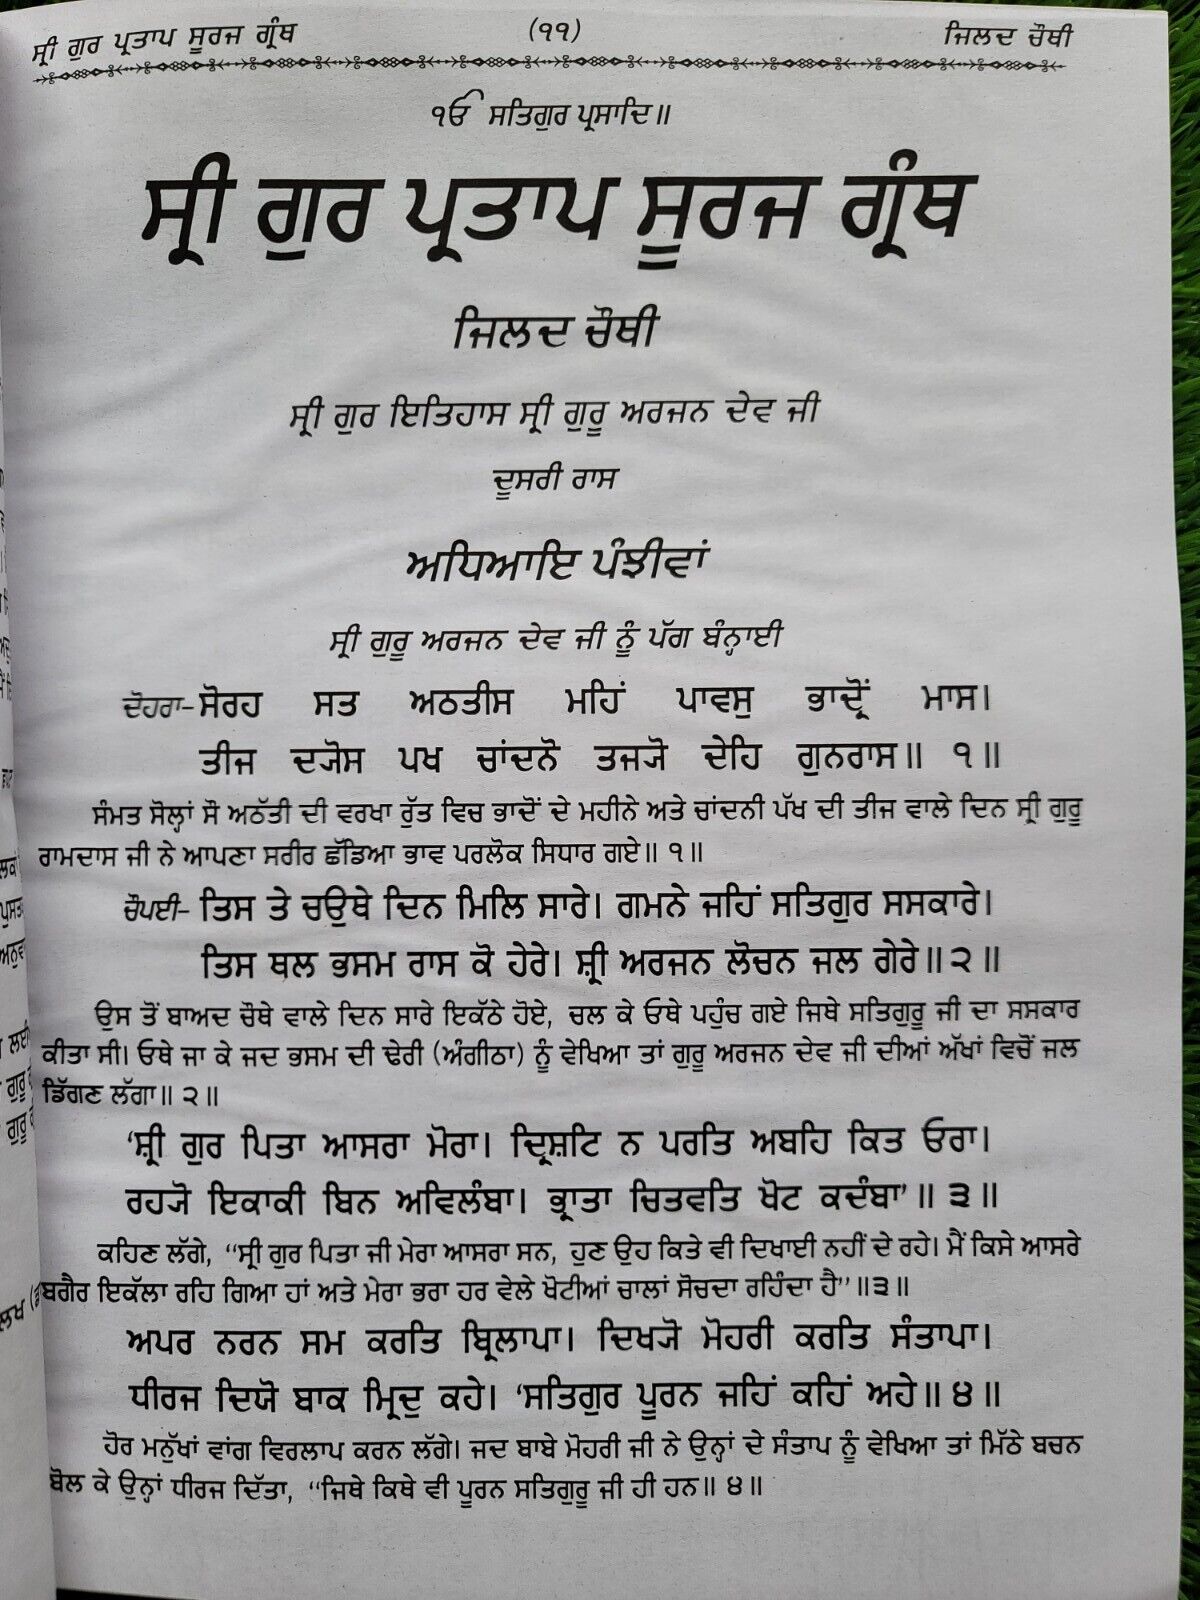 ਸ੍ਰੀ ਗੁਰ ਪ੍ਰਤਾਪ ਸੂਰਜ ਗ੍ਰੰਥ (੧੧) ਜਿਲਦ ਚੌਥੀ
ੴ ਸਤਿਗੁਰ ਪ੍ਰਸਾਦਿ॥
ਸ੍ਰੀ ਗੁਰ ਪ੍ਰਤਾਪ ਸੂਰਜ ਗ੍ਰੰਥ
ਜਿਲਦ ਚੌਥੀ
ਸ੍ਰੀ ਗੁਰ ਇਤਿਹਾਸ ਸ੍ਰੀ ਗੁਰੂ ਅਰਜਨ ਦੇਵ ਜੀ
ਦੂਸਰੀ ਰਾਸ
ਅਧਿਆਇ ਪੰਝੀਵਾਂ
ਸ੍ਰੀ ਗੁਰੂ ਅਰਜਨ ਦੇਵ ਜੀ ਨੂੰ ਪੱਗ ਬੰਨ੍ਹਾਈ
ਦੋਹਰਾ- ਸੋਰਹ ਸਤ ਅਠਤੀਸ ਮਹਿਂ ਪਾਵਸੁ ਭਾਦ੍ਰੋਂ ਮਾਸ।
ਤੀਜ ਦ੍ਯੋਸ ਪਖ ਚਾਂਦਨੋ ਤਜ੍ਯੋ ਦੇਹਿ ਗੁਨਰਾਸ॥ ੧॥
ਸੰਮਤ ਸੋਲ੍ਹਾਂ ਸੌ ਅਠੱਤੀ ਦੀ ਵਰਖਾ ਰੁੱਤ ਵਿਚ ਭਾਦੋਂ ਦੇ ਮਹੀਨੇ ਅਤੇ ਚਾਂਦਨੀ ਪੱਖ ਦੀ ਤੀਜ ਵਾਲੇ ਦਿਨ ਸ੍ਰੀ ਗੁਰੂ
ਰਾਮਦਾਸ ਜੀ ਨੇ ਆਪਣਾ ਸਰੀਰ ਛੱਡਿਆ ਭਾਵ ਪਰਲੋਕ ਸਿਧਾਰ ਗਏ॥ ੧॥
ਚੌਪਈ- ਤਿਸ ਤੇ ਚਉਥੇ ਦਿਨ ਮਿਲਿ ਸਾਰੇ। ਗਮਨੇ ਜਹਿਂ ਸਤਿਗੁਰ ਸਸਕਾਰੇ।
ਤਿਸ ਥਲ ਭਸਮ ਰਾਸ ਕੋ ਹੇਰੇ। ਸ਼੍ਰੀ ਅਰਜਨ ਲੋਚਨ ਜਲ ਗੇਰੇ॥ ੨॥
ਉਸ ਤੋਂ ਬਾਅਦ ਚੌਥੇ ਵਾਲੇ ਦਿਨ ਸਾਰੇ ਇਕੱਠੇ ਹੋਏ, ਚਲ ਕੇ ਓਥੇ ਪਹੁੰਚ ਗਏ ਜਿਥੇ ਸਤਿਗੁਰੂ ਜੀ ਦਾ ਸਸਕਾਰ
ਕੀਤਾ ਸੀ। ਓਥੇ ਜਾ ਕੇ ਜਦ ਭਸਮ ਦੀ ਢੇਰੀ (ਅੰਗੀਠਾ) ਨੂੰ ਵੇਖਿਆ ਤਾਂ ਗੁਰੂ ਅਰਜਨ ਦੇਵ ਜੀ ਦੀਆਂ ਅੱਖਾਂ ਵਿਚੋਂ ਜਲ
ਡਿੱਗਣ ਲੱਗਾ॥ ੨॥
‘ਸ਼੍ਰੀ ਗੁਰ ਪਿਤਾ ਆਸਰਾ ਮੋਰਾ। ਦ੍ਰਿਸ਼ਟਿ ਨ ਪਰਤਿ ਅਬਹਿ ਕਿਤ ਓਰਾ।
ਰਹ੍ਯੋ ਇਕਾਕੀ ਬਿਨ ਅਵਿਲੰਬਾ। ਭ੍ਰਾਤਾ ਚਿਤਵਤਿ ਖੋਟ ਕਦੰਬਾ’॥ ੩॥
ਕਹਿਣ ਲੱਗੇ, “ਸ੍ਰੀ ਗੁਰ ਪਿਤਾ ਜੀ ਮੇਰਾ ਆਸਰਾ ਸਨ, ਹੁਣ ਉਹ ਕਿਤੇ ਵੀ ਦਿਖਾਈ ਨਹੀਂ ਦੇ ਰਹੇ। ਮੈਂ ਕਿਸੇ ਆਸਰੇ
ਬਗੈਰ ਇਕੱਲਾ ਰਹਿ ਗਿਆ ਹਾਂ ਅਤੇ ਮੇਰਾ ਭਰਾ ਹਰ ਵੇਲੇ ਖੋਟੀਆਂ ਚਾਲਾਂ ਸੋਚਦਾ ਰਹਿੰਦਾ ਹੈ”॥੩॥
ਅਪਰ ਨਰਨ ਸਮ ਕਰਤਿ ਬ੍ਰਿਲਾਪਾ। ਦਿਖ੍ਯੋ ਮੋਹਰੀ ਕਰਤਿ ਸੰਤਾਪਾ।
ਧੀਰਜ ਦਿਯੋ ਬਾਕ ਮ੍ਰਿਦੁ ਕਹੇ। ‘ਸਤਿਗੁਰ ਪੂਰਨ ਜਹਿਂ ਕਹਿਂ ਅਹੇ॥ ੪॥
ਹੋਰ ਮਨੁੱਖਾਂ ਵਾਂਗ ਵਿਰਲਾਪ ਕਰਨ ਲੱਗੇ। ਜਦ ਬਾਬੇ ਮੋਹਰੀ ਜੀ ਨੇ ਉਨ੍ਹਾਂ ਦੇ ਸੰਤਾਪ ਨੂੰ ਵੇਖਿਆ ਤਾਂ ਮਿੱਠੇ ਬਚਨ
ਬੋਲ ਕੇ ਉਨ੍ਹਾਂ ਧੀਰਜ ਦਿੱਤਾ, “ਜਿਥੇ ਕਿਥੇ ਵੀ ਪੂਰਨ ਸਤਿਗੁਰੂ ਜੀ ਹੀ ਹਨ॥ ੪॥